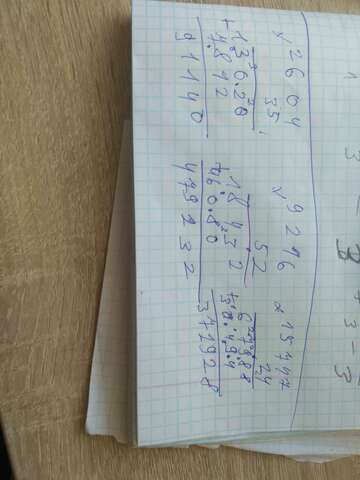 × 2604
35
13020
+ 7812
91140
× 9216
52
18432
+ 46080
479232
× 15497
24
61988
+ 30994
371928